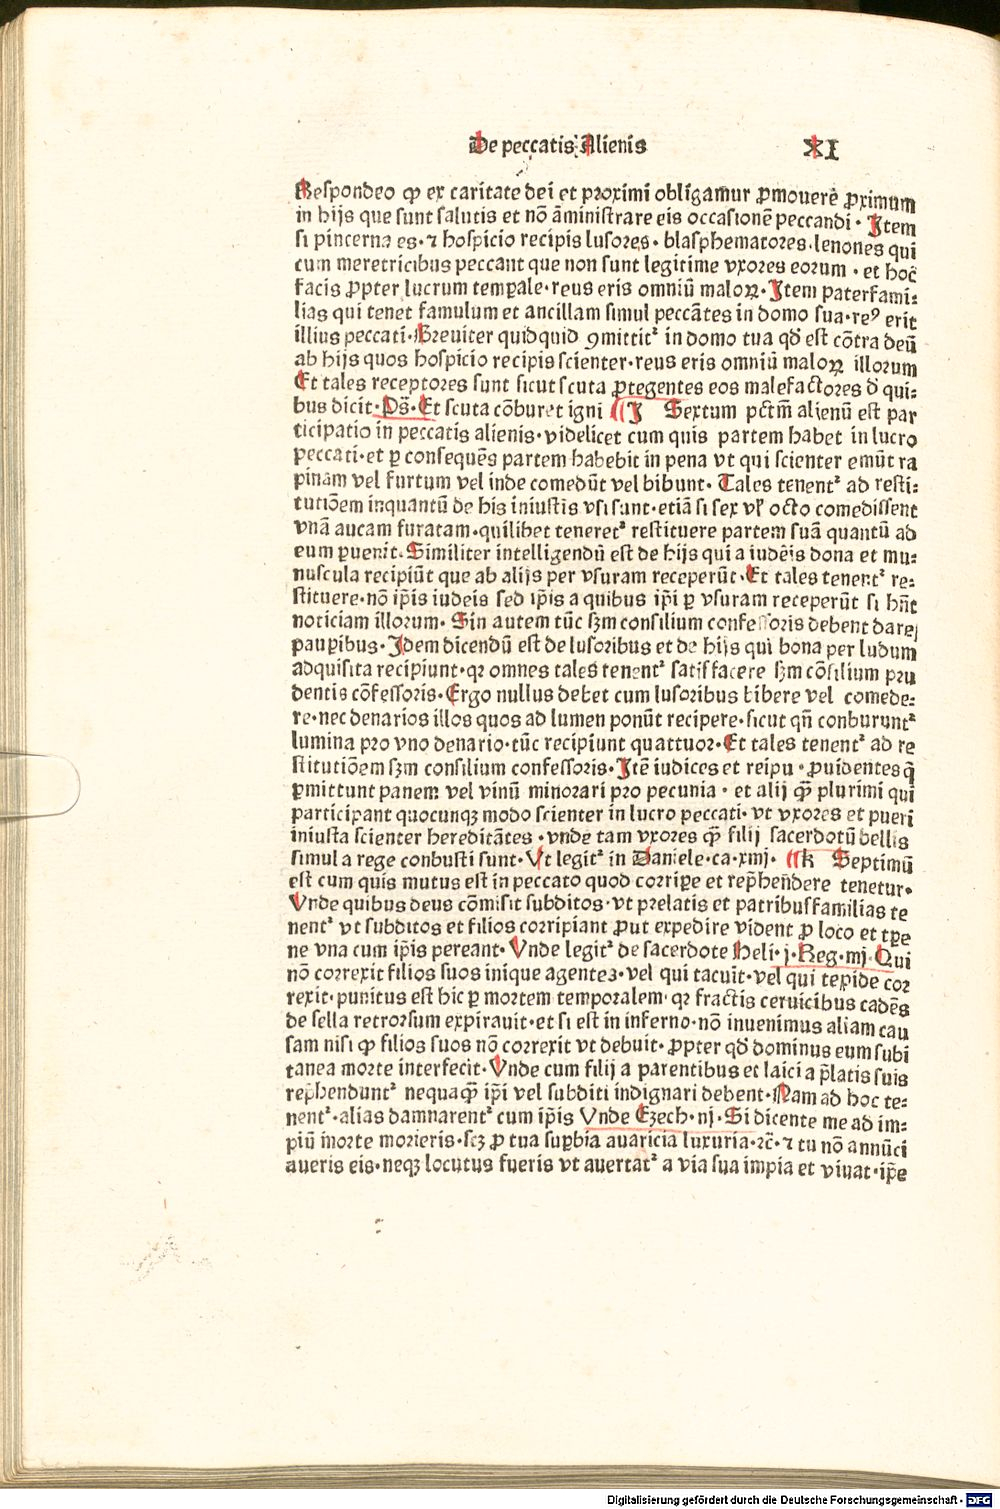 De peccatis Alienis XI
Respondeo ꝙ ex caritate dei et proximi obligamur ꝓmouere ꝓximum
in hijs que sunt salutis et nō āministrare eis occasionē peccandi · Jtem
si pincerna es · ⁊ hospicio recipis lusores · blasphematores · lenones qui
cum meretricibus peccant que non sunt legitime vxores eorum · et hoc̄
facis ꝓpter lucrum temꝑale · reus eris omniū maloꝝ · Jtem paterfami⸗
lias qui tenet famulum et ancillam simul peccātes in domo sua · reꝰ erit
illius peccati · Breuiter quidquid ꝯmittitᷣ in domo tua qd̄ est cōtra deū
ab hijs quos hospicio recipis scienter · reus eris omniū maloꝝ illorum
Et tales receptores sunt sicut scuta ꝓtegentes eos malefactores d̄ qui⸗
bus dicit · Ps̄ · Et scuta cōburet igni ⸿ J Sextum pctm̄ alienū est par
ticipatio in peccatis alienis · videlicet cum quis partem habet in lucro
peccati · et ꝑ consequēs partem habebit in pena vt qui scienter emūt ra
pinam vel furtum vel inde comedūt vel bibunt · Tales tenentᷣ ad resti⸗
tutiōem inquantū de his iniustis vsi sunt · etiā si sex vl̓ octo comedissent
vnā aucam furatam · quilibet teneretᷣ restituere partem suā quantū ad
eum ꝑuenit · Similiter intelligendū est de hijs qui a iudēis dona et mu⸗
nuscula recipiūt que ab alijs per vsuram receperūt · Et tales tenentᷣ re⸗
stituere · nō ip̄is iudeis sed ip̄is a quibus ip̄i ꝑ vsuram receperūt si hn̄t
noticiam illorum · Sin autem tūc sꝫm consilium confessoris debent dare
pauꝑibus · Jdem dicendū est de lusoribus et de hijs qui bona per ludum
adquisita recipiunt · qꝛ omnes tales tenentᷣ satisfacere sꝫm cōsilium pru
dentis cōfessoris · Ergo nullus debet cum lusoribus bibere vel comede⸗
re · nec denarios illos quos ad lumen ponūt recipere · sicut qn̄ conburuntᷣ
lumina pro vno denario · tūc recipiunt quattuor · Et tales tenentᷣ ad re
stitutiōem sꝫm consilium confessoris · Jtē iudices et reipu · ꝓuidentes q̄
ꝑmittunt panem vel vinū minorari pro pecunia · et alij qm̄ plurimi qui
participant quocunqꝫ modo scienter in lucro peccati · vt vxores et pueri
iniusta scienter hereditātes · vnde tam vxores qm̄ filij sacerdotū bellis
simul a rege conbusti sunt · Vt legitᷣ in Daniele · ca · xiiij · ⸿ k Septimū
est cum quis mutus est in peccato quod corriꝑe et rep̄hen̄dere tenetur ·
Vnde quibus deus cōmisit subditos · vt prelatis et patribusfamilias te
nentᷣ vt subditos et filios corripiant ꝓut expedire vident ꝓ loco et tꝑe
ne vna cum ip̄is pereant · Vnde legitᷣ de sacerdote Heli · j · Reg · iiij · Qui
nō correxit filios suos inique agentes · vel qui tacuit · vel qui tepide cor
rexit · punitus est hic ꝑ mortem temporalem · qꝛ fractis ceruicibus cadēs
de sella retrorsum expirauit · et si est in inferno · nō inuenimus aliam cau
sam nisi ꝙ filios suos nō correxit vt debuit · ꝓpter qd̄ dominus eum subi
tanea morte interfecit · Vnde cum filij a parentibus et laici a p̄latis suis
rep̄henduntᷣ nequaqm̄ ip̄i vel subditi indignari debent · Nam ad hoc te⸗
nentᷣ · alias damnarentᷣ cum ip̄is Vnde Ezech · iij · Si dicente me ad im⸗
piū morte morieris · scꝫ ꝓ tua suꝑbia auaricia luxuria · ꝛc̄ · ⁊ tu nō annūci
aueris eis · neqꝫ locutus fueris vt auertatᷣ a via sua impia et viuat · ip̄e
Digitalisierung gefördert durch die Deutsche Forschungsgemeinschaft - DFG